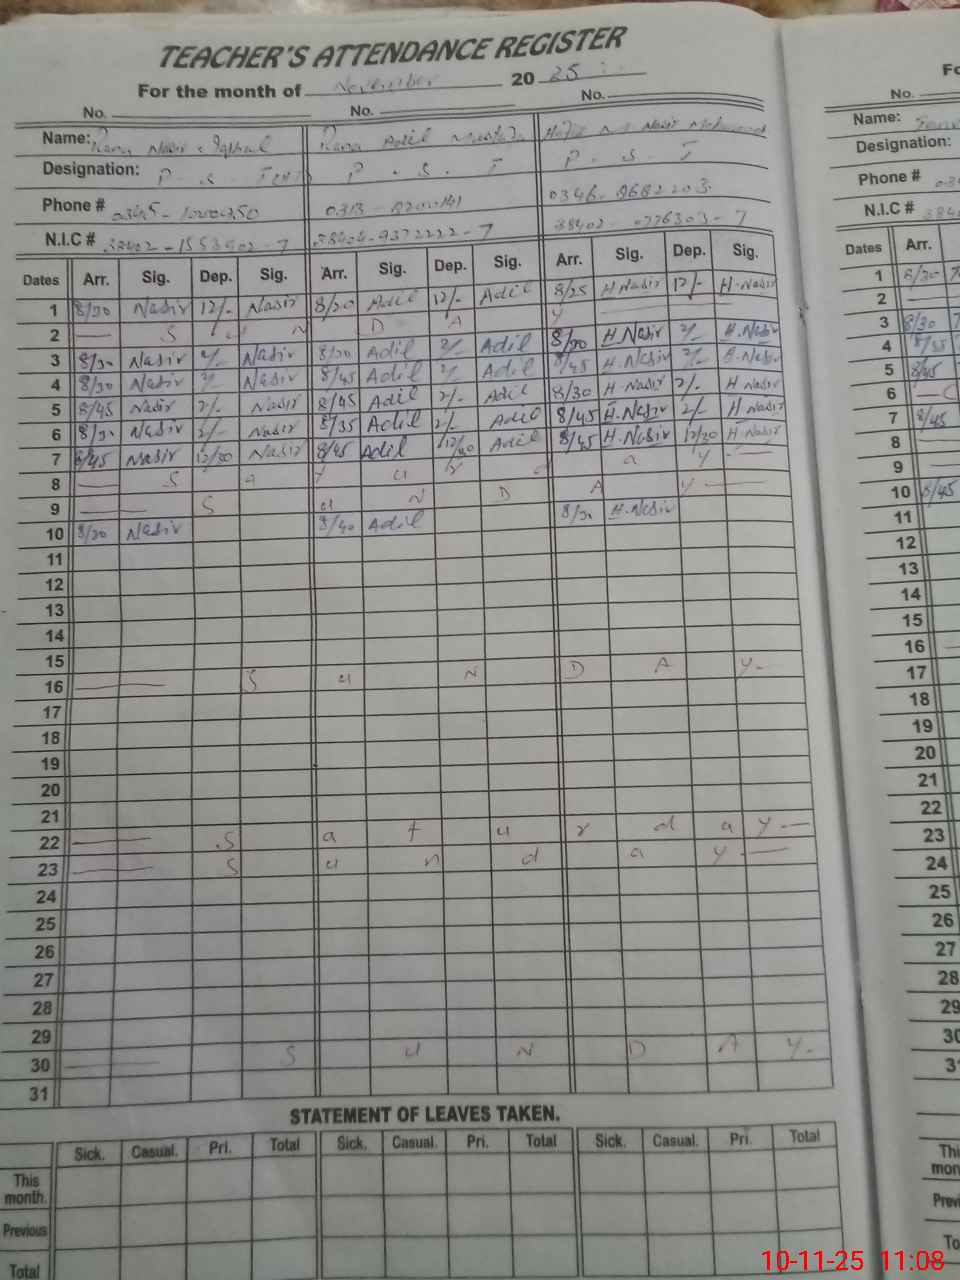 TEACHER'S ATTENDANCE REGISTER
For the month of November 2025
No. No. No.
Name: Rana Nasir Iqbal Rana Adil Mustafa Hafiz M. Nasir Mehmood
Designation: P. S. T P. S. T P. S. T
Phone # 0346-9682203
N.I.C # 38402-1553902-7 38404-9372222-7 38402-0776303-7
Dates Arr. Sig. Dep. Sig. Arr. Sig. Dep. Sig. Arr. Sig. Dep. Sig.
1 8/30 Nasir 12/- Nasir 8/20 Adil 12/- Adil 8/25 H.Nasir 12/- H.Nasir
2 S u N D A Y
3 8/30 Nasir 2/- Nasir 8/30 Adil 2/- Adil 8/30 H.Nasir 2/- H.Nasir
4 8/30 Nasir 2/- Nasir 8/45 Adil 2/- Adil 8/45 H.Nasir 2/- H.Nasir
5 8/45 Nasir 2/- Nasir 8/45 Adil 2/- Adil 8/30 H.Nasir 2/- H Nasir
6 8/30 Nasir 2/- Nasir 8/35 Adil 2/- Adil 8/45 H.Nasir 2/- H Nasir
7 8/45 Nasir 12/30 Nasir 8/45 Adil 12/30 Adil 8/45 H.Nasir 12/30 H.Nasir
8 S a t u r d a y
9 S u N D A y
10 8/30 Nasir 8/40 Adil 8/30 H.Nasir
11
12
13
14
15
16 S u N D A Y
17
18
19
20
21
22 S a t u r d a y
23 S u n d a y
24
25
26
27
28
29
30 S U N D A Y
31
STATEMENT OF LEAVES TAKEN.
Sick. Casual. Pri. Total Sick. Casual. Pri. Total Sick. Casual. Pri. Total
This month.
Previous
Total
No.
Name:
Designation:
Phone #
N.I.C #
Dates Arr.
1 8/30
2
3 8/30
4 8/35
5 8/45
6
7 8/45
8
9
10 8/45
11
12
13
14
15
16
17
18
19
20
21
22
23
24
25
26
27
28
29
30
31
10-11-25 11:08